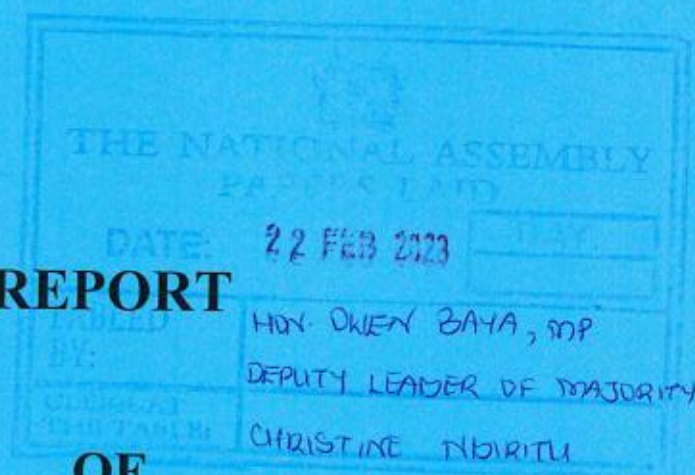 THE NATIONAL ASSEMBLY
PAPERS LAID
DATE: 22 FEB 2023 DAY:
REPORT
TABLED BY: HON. OWEN BAYA, MP
DEPUTY LEADER OF MAJORITY
CLERK AT THE TABLE: CHRISTINE NDIRITU
OF